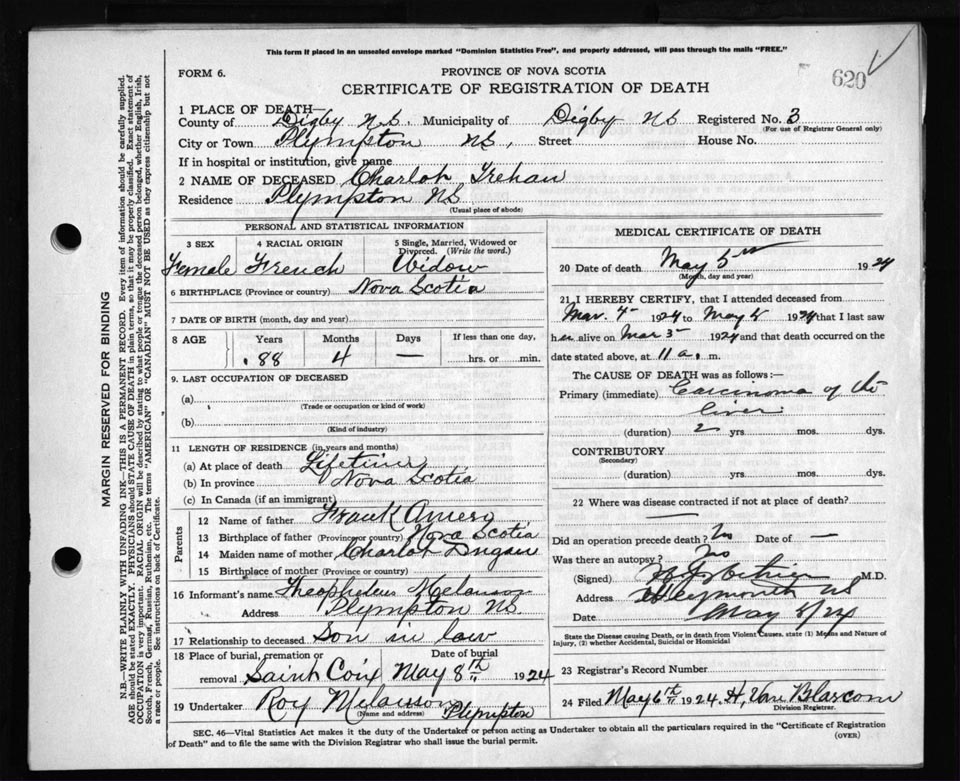 This form if placed in an unsealed envelope marked "Dominion Statistics Free", and properly addressed, will pass through the mails "FREE."
FORM 6.
PROVINCE OF NOVA SCOTIA
620
CERTIFICATE OF REGISTRATION OF DEATH
1 PLACE OF DEATH—
County of Digby N.S. Municipality of Digby NS Registered No. 3
(For use of Registrar General only)
City or Town Plympton NS, Street House No.
If in hospital or institution, give name
2 NAME OF DECEASED Charlot Trehan
Residence Plympton NS
(Usual place of abode)
PERSONAL AND STATISTICAL INFORMATION
3 SEX 4 RACIAL ORIGIN 5 Single, Married, Widowed or Divorced. (Write the word.)
Female French Widow
6 BIRTHPLACE (Province or country) Nova Scotia
7 DATE OF BIRTH (month, day and year)
8 AGE Years Months Days If less than one day,
88 4 — hrs. or min.
9. LAST OCCUPATION OF DECEASED
(a)
(Trade or occupation or kind of work)
(b)
(Kind of industry)
11 LENGTH OF RESIDENCE (in years and months)
(a) At place of death Lifetime
(b) In province Nova Scotia
(c) In Canada (if an immigrant)
Parents
12 Name of father Frank
13 Birthplace of father (Province or country) Nova Scotia
14 Maiden name of mother Charlot Dugan
15 Birthplace of mother (Province or country)
16 Informant's name Theopheleus Melanson
Address Plympton NS
17 Relationship to deceased Son in law
18 Place of burial, cremation or removal Date of burial
Saint Coix May 8th 1924
19 Undertaker Roy Melanson Plympton
(Name and address)
MEDICAL CERTIFICATE OF DEATH
20 Date of death May 5 1924
(Month, day and year)
21 I HEREBY CERTIFY, that I attended deceased from
Mar. 4 1924 to May 5 1924 that I last saw
her alive on Mar 3 1924 and that death occurred on the
date stated above, at 11 a. m.
The CAUSE OF DEATH was as follows:—
Primary (immediate) Carcinoma of the
liver
(duration) 2 yrs. mos. dys.
CONTRIBUTORY
(Secondary)
(duration) yrs. mos. dys.
22 Where was disease contracted if not at place of death?
—
Did an operation precede death? No Date of —
Was there an autopsy? No
(Signed) M.D.
Address Weymouth NS
Date May 5/24
State the Disease causing Death, or in death from Violent Causes, state (1) Means and Nature of
Injury, (2) whether Accidental, Suicidal or Homicidal
23 Registrar's Record Number
24 Filed May 6th 1924. H. Van Blarcom
Division Registrar.
SEC. 46—Vital Statistics Act makes it the duty of the Undertaker or person acting as Undertaker to obtain all the particulars required in the "Certificate of Registration
of Death" and to file the same with the Division Registrar who shall issue the burial permit.
(OVER)
MARGIN RESERVED FOR BINDING
N.B.—WRITE PLAINLY WITH UNFADING INK—THIS IS A PERMANENT RECORD. Every item of information should be carefully supplied.
AGE should be stated EXACTLY. PHYSICIANS should STATE CAUSE OF DEATH in plain terms, so that it may be properly classified. Exact statement of
OCCUPATION is very important. RACIAL ORIGIN will be described by stating to what people or tongue the deceased person belonged, whether English, Irish,
Scotch, French, German, Russian, Ruthenian, etc. The terms "AMERICAN" OR "CANADIAN" MUST NOT BE USED as they express citizenship but not
a race or people. See instructions on back of Certificate.